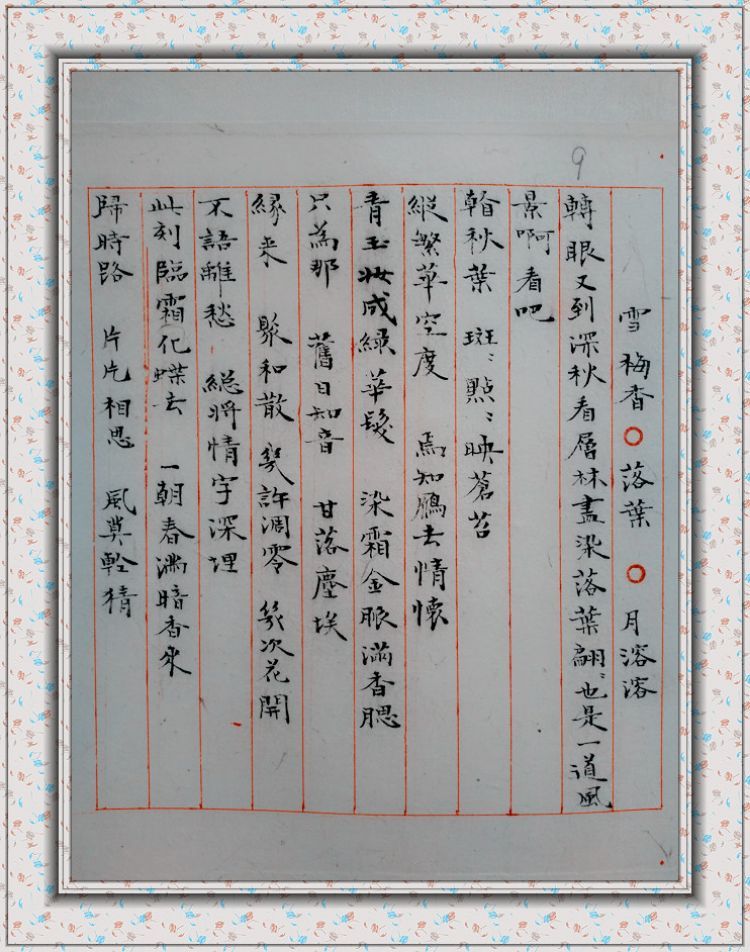 9
雪梅香○落葉 ○月溶溶
轉眼又到深秋看層林盡染落葉翩〻也是一道風
景啊看吧
秋葉 斑〻點〻映蒼苔
縱繁華空度 焉知鴈去情懷
青玉妝成綠華髮 染霜金 滿香腮
只為那 舊日知音 甘落塵埃
緣来 聚和散 幾許凋零 幾次花開
不語離愁 總將情字深埋
此刻臨霜化蝶去 一朝春滿暗香來
歸時路 片片相思 風莫輕猜